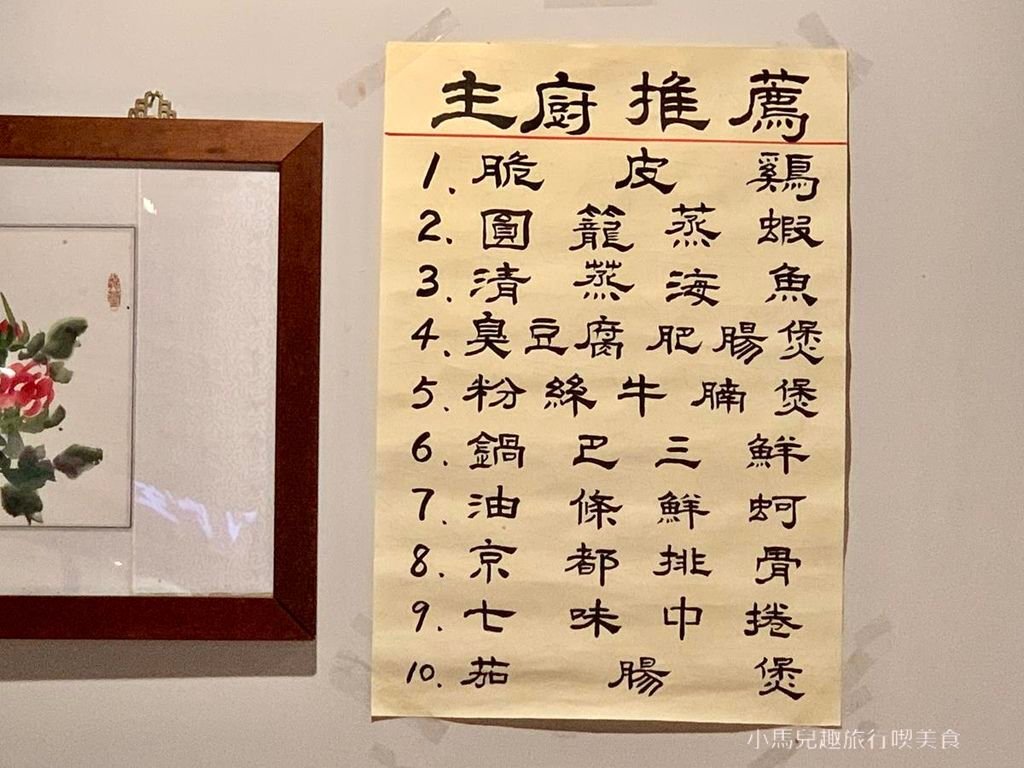 主廚推薦
1. 脆皮鷄
2. 圓籠蒸蝦
3. 清蒸海魚
4. 臭豆腐肥腸煲
5. 粉絲牛腩煲
6. 鍋巴三鮮
7. 油條鮮蚵
8. 京都排骨
9. 七味中捲
10. 茄腸煲
小馬兒趣旅行喫美食